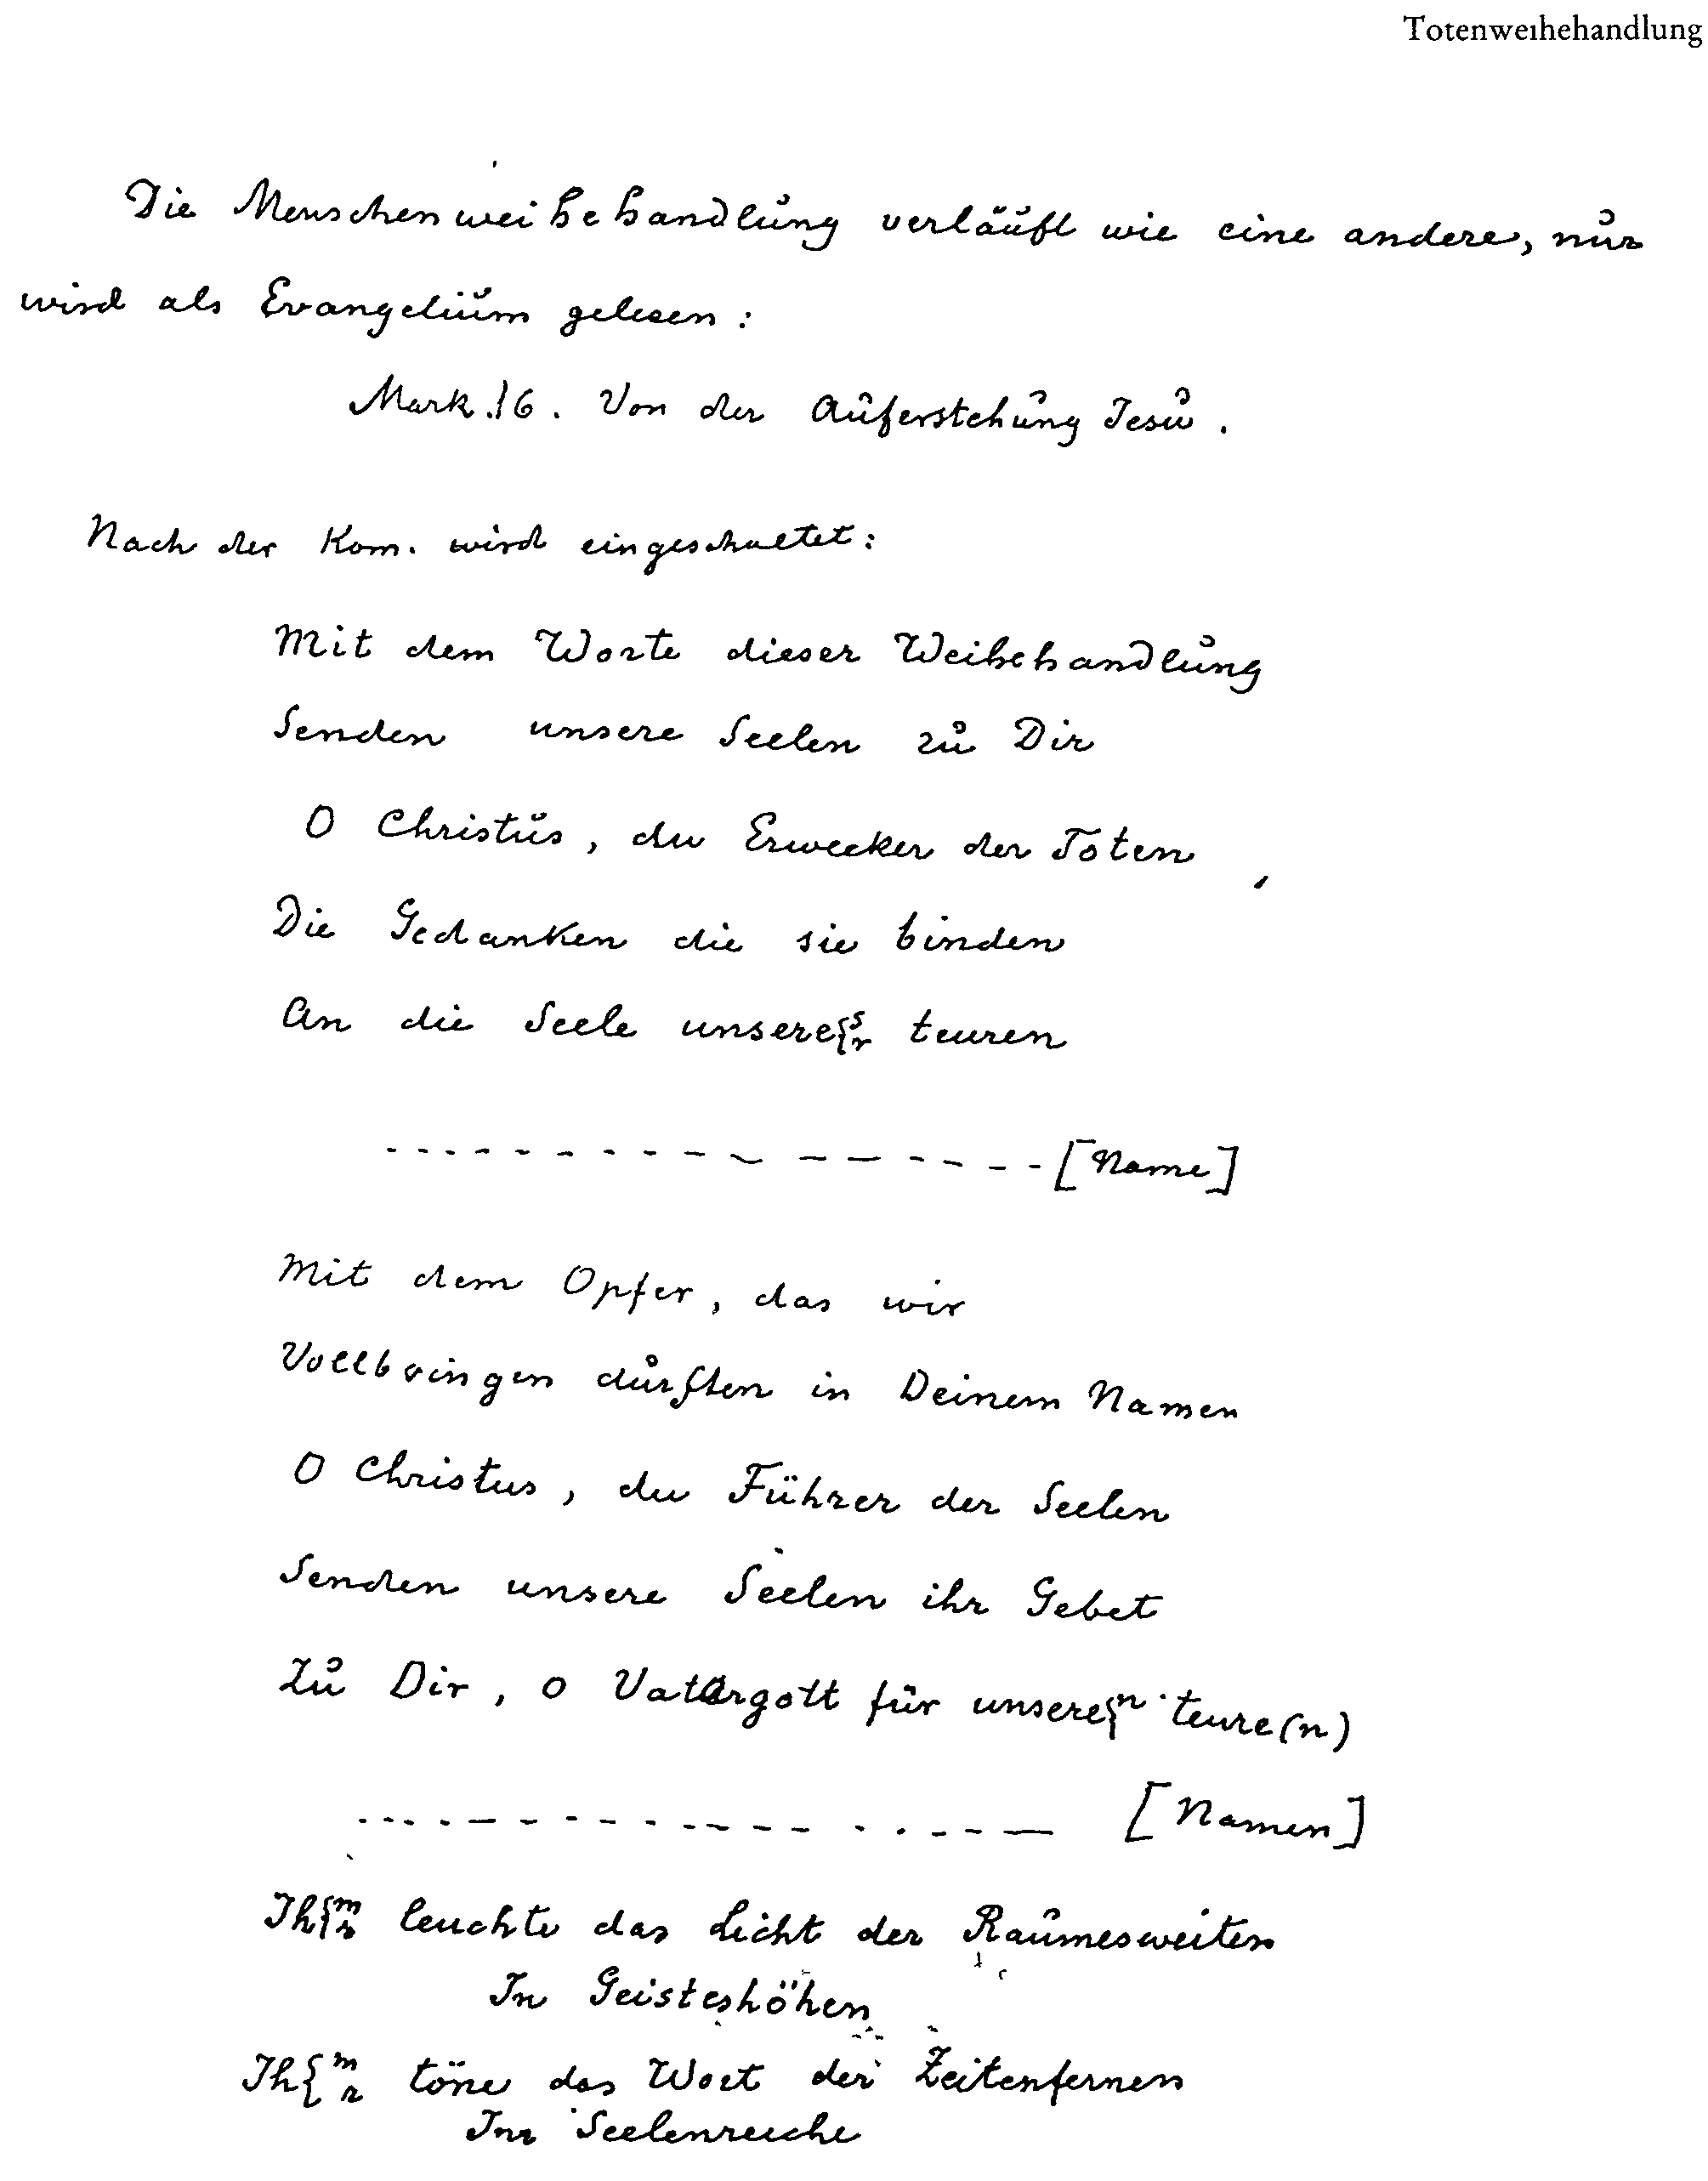 Totenweihehandlung
Die Menschenweihehandlung verläuft wie eine andere, nur
wird als Evangelium gelesen:
Mark. 16. Von der Auferstehung Jesu.
Nach der Kom. wird eingeschaltet:
Mit dem Worte dieser Weihehandlung
Senden unsere Seelen zu Dir
O Christus, du Erwecker der Toten,
Die Gedanken die sie binden
An die Seele unsere{s r teuren
- - - - - - - - - - - - - - - - [Name]
Mit dem Opfer, das wir
Vollbringen dürften in Deinem Namen
O Christus, du Führer der Seelen
Senden unsere Seelen ihr Gebet
Zu Dir, o Vatergott für unsere{n teure(n)
- - - - - - - - - - - - - - - - [Namen]
Ih{m r leuchte das Licht der Raumesweiten
In Geisteshöhen
Ih{m r töne das Wort der Zeitenfernen
Im Seelenreiche